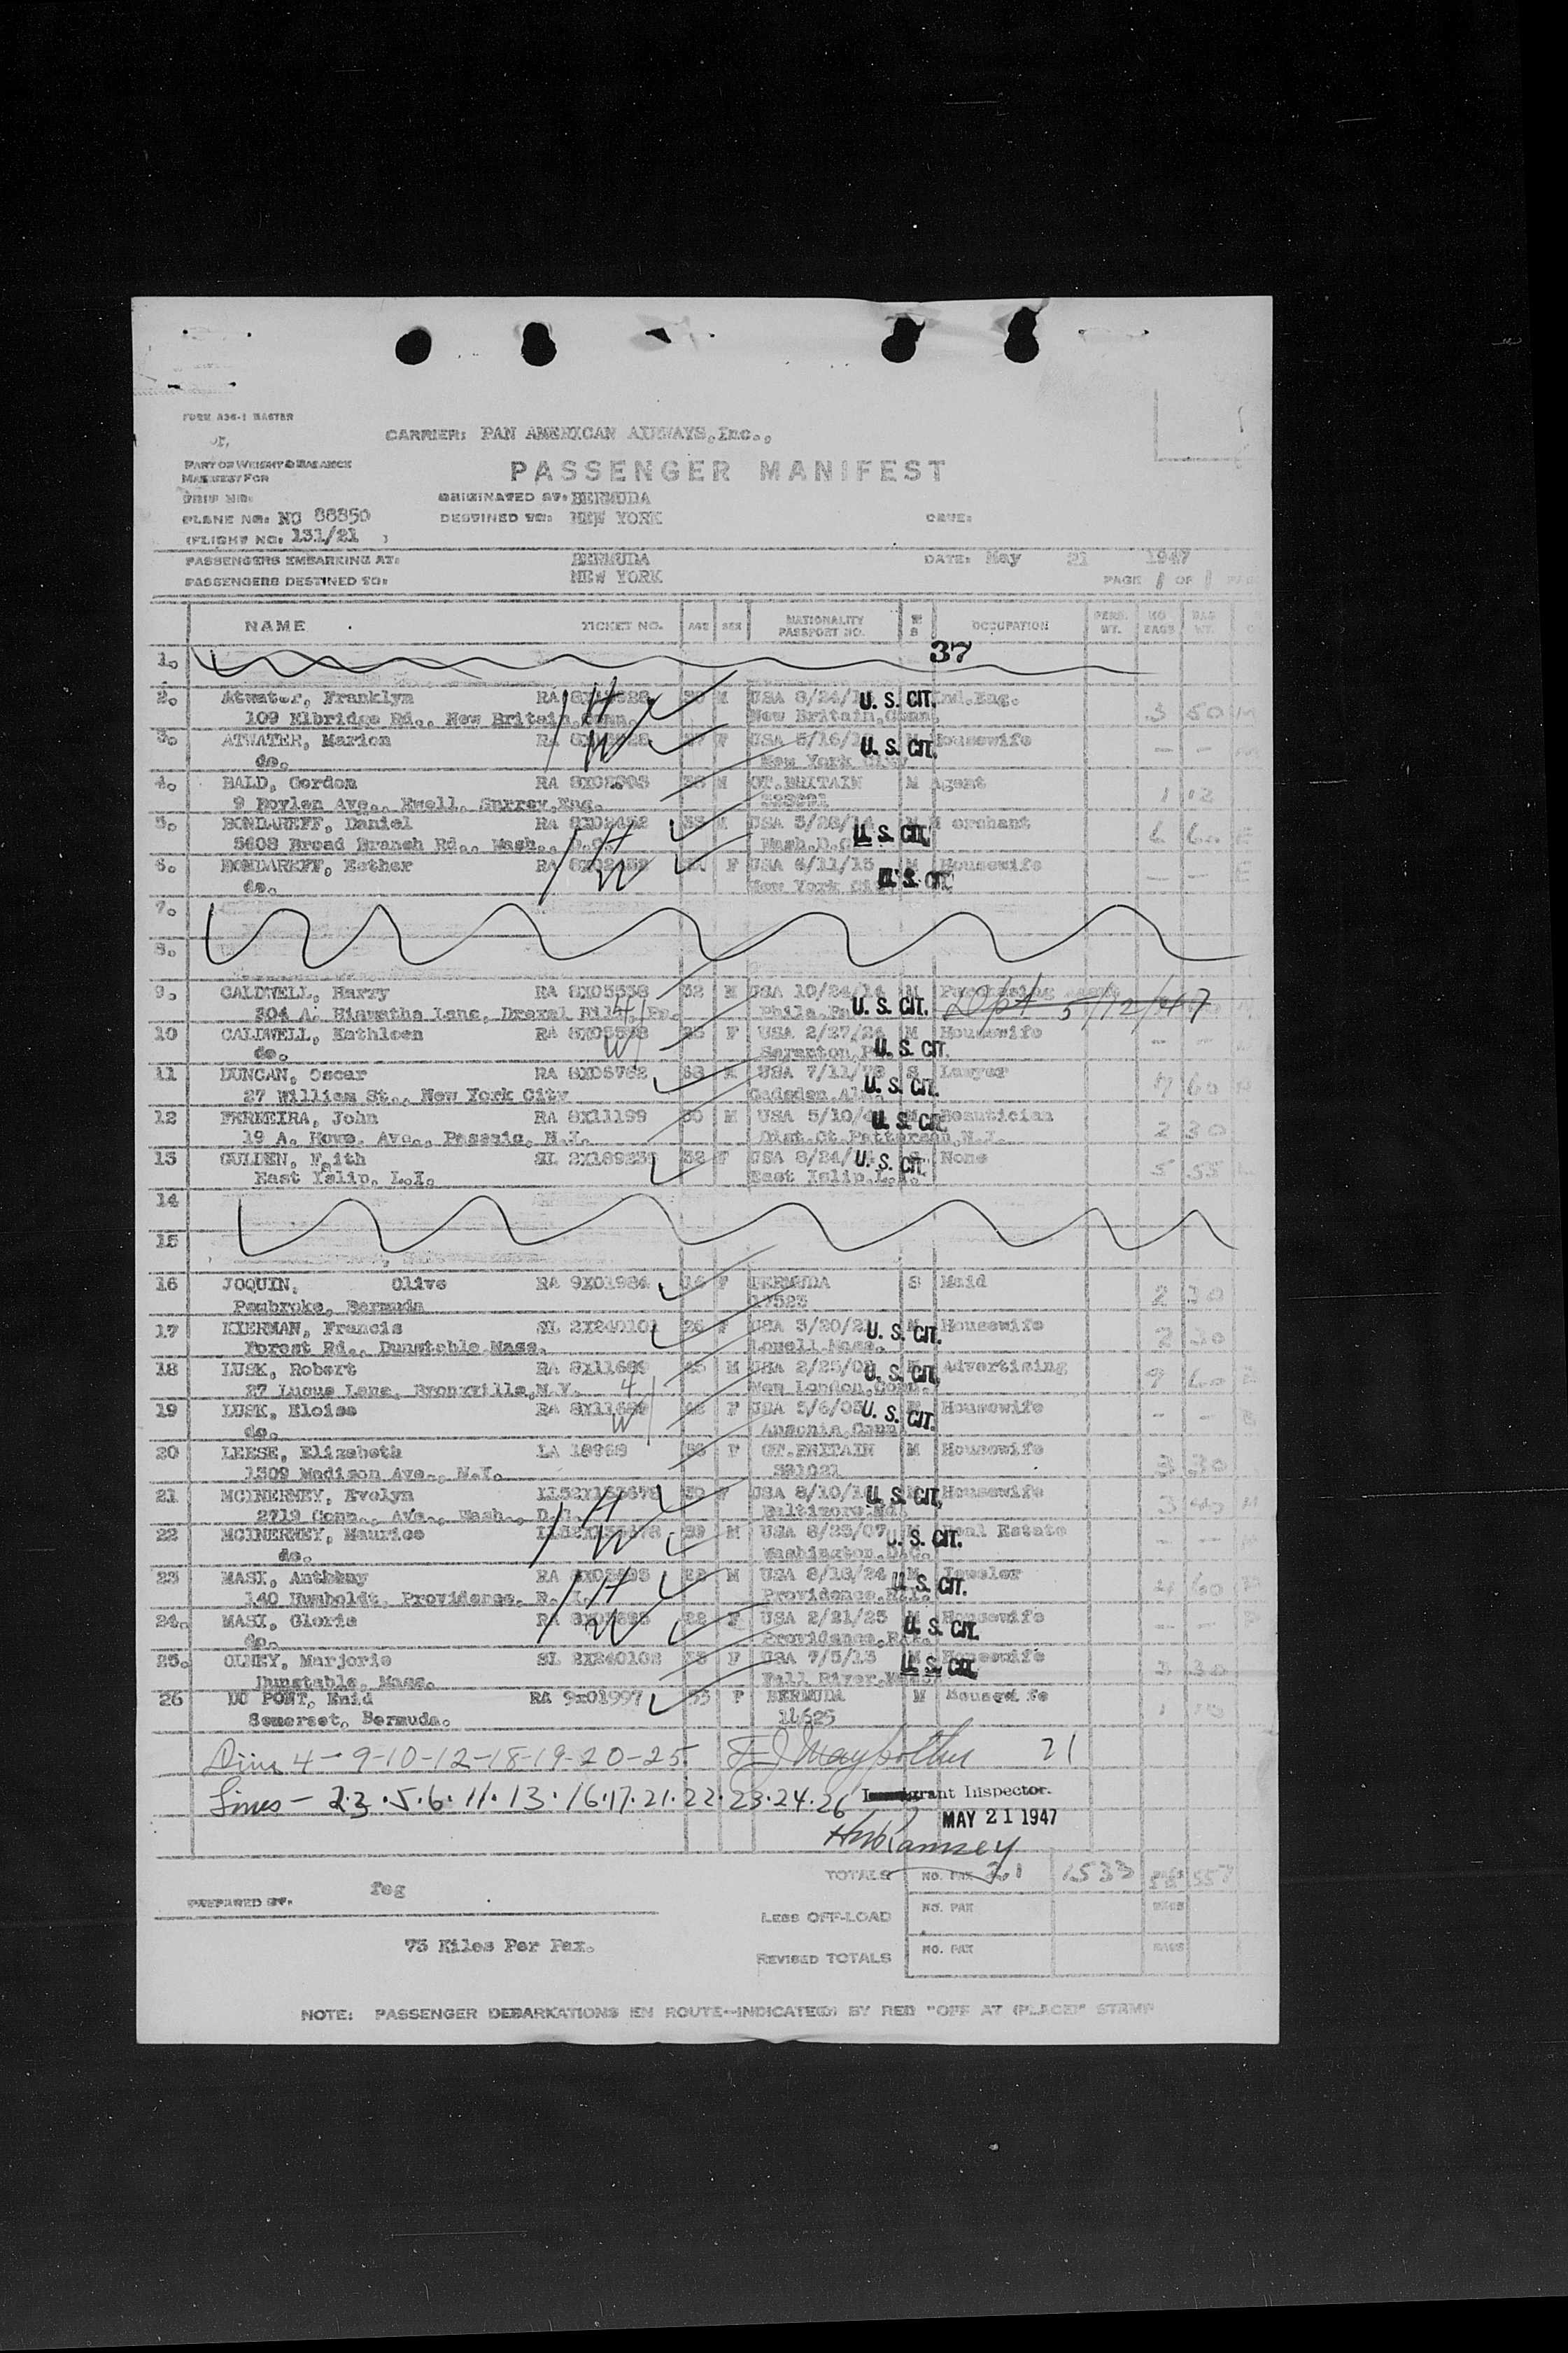 FORM A36-1 MASTER
CARRIER: PAN AMERICAN AIRWAYS, Inc.,
PART OF WEIGHT & BALANCE
MANIFEST FOR
PASSENGER MANIFEST
TRIP NO:
ORIGINATED AT: BERMUDA
PLANE NO: NC 88850
DESTINED TO: NEW YORK
CREW:
(FLIGHT NO: 131/21 )
PASSENGERS EMBARKING AT: BERMUDA DATE: May 21 1947
PASSENGERS DESTINED TO: NEW YORK PAGE 1 OF 1
NAME TICKET NO. AGE SEX NATIONALITY PASSPORT NO. OCCUPATION PERS. WT. NO BAGS BAG WT.
37
1.
2. Atwater, Franklyn RA M USA 8/24/ U. S. CIT. Ind.Eng.
109 Elbridge Rd., New Britain, Conn. New Britain, Conn. 3 50
3. ATWATER, Marion RA F USA 5/16/ U. S. CIT. Housewife
do. New York City - -
4. BALD, Gordon RA M GT.BRITAIN M Agent
Ave., Ewell, Surrey, Eng. 1 12
5. BONDAREFF, Daniel RA USA U. S. CIT. Merchant
5608 Broad Branch Rd., Wash., D.C. Wash.D.C. 6 60 E
6. BONDAREFF, Esther RA F USA 4/11/15 M Housewife
do. New York City U. S. CIT. - - E
7.
8.
9. CALDWELL, Harry RA 8X05538 32 M USA 10/24/14 M Purchasing
304 A. Hiawatha Lane, Drexel Hill, Pa. Phila. Pa. U. S. CIT. Dept 5/12/47
10 CALDWELL, Kathleen RA F USA 2/27/24 M Housewife
do. Scranton, Pa U. S. CIT. - -
11 DUNCAN, Oscar RA 8X05762 68 M USA 7/11/78 S Lawyer
27 William St., New York City Gadsden, Ala. U. S. CIT. 60
12 FERREIRA, John RA 8X11199 30 M USA 5/10/ U. S. CIT. Beautician
19 A. Howe. Ave., Passaic, N.J. Dist.Ct.Patterson, N.J. 2 30
13 GULDEN, Faith SL 32 F USA 8/24/ U. S. CIT. None
East Islip, L.I. East Islip, L.I. 5 55
14
15
16 JOQUIN, Olive RA 9X01984 F BERMUDA S Maid
Pembroke, Bermuda 17523 2 30
17 KIERMAN, Francis SL 2X240101 26 F USA 3/20/21 U. S. CIT. Housewife
Forest Rd., Dunstable, Mass. Lowell, Mass. 2 30
18 LUSK, Robert RA 8X11689 45 M USA 2/25/02 U. S. CIT. Advertising
27 Lane, Bronxville, N.Y. New London, Conn. 9 60
19 LUSK, Eloise RA 8X11689 F USA 5/6/05 U. S. CIT. Housewife
do. Ansonia, Conn. - -
20 LEESE, Elizabeth LA F GT.BRITAIN M Housewife
1309 Madison Ave., N.Y. 321021 3 30
21 MCINERNEY, Evelyn F USA 8/10/ U. S. CIT. Housewife
2719 Conn., Ave., Wash., D.C. Baltimore, Md. 3 40
22 MCINERNEY, Maurice 39 M USA 8/25/07 U. S. CIT. Real Estate
do. Washington, D.C. - -
23 MASI, Anthony RA M USA 8/18/24 U. S. CIT. Jeweler
140 Humboldt, Providence, R. I. Providence, R.I. 4 60
24. MASI, Gloria RA 22 F USA 2/21/25 M Housewife
do. Providence, R.I. U. S. CIT. - -
25. OLNEY, Marjorie SL 2X240102 33 F USA 7/5/13 M Housewife
Dunstable, Mass. Fall River, Mass. U. S. CIT. 3 30
26 DU PONT, Enid RA 9x01997 33 F BERMUDA M Housewife
Somerset, Bermuda. 11625
4-9-10-12-18-19-20-25 21
Lines - 2.3.5.6.11.13.16.17.21.22.23.24.26 Immigrant Inspector.
MAY 21 1947
Ramsey
TOTALS NO. PAX 21 1533 557
PREPARED BY. feg
LESS OFF-LOAD NO. PAX BAGS
73 Kilos Per Pax.
REVISED TOTALS NO. PAX BAGS
NOTE: PASSENGER DEBARKATIONS EN ROUTE-INDICATED BY RED "OFF AT (PLACE)" STAMP